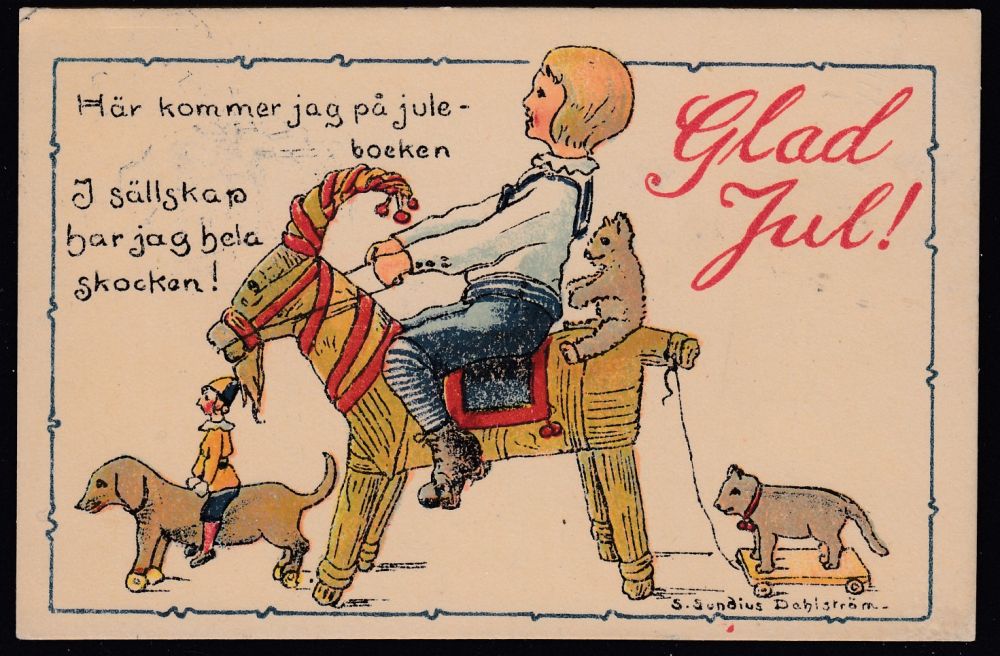 Här kommer jag på jule-
bocken
I sällskap
har jag hela
skocken!
Glad
Jul!
S. Sundius Dahlström-